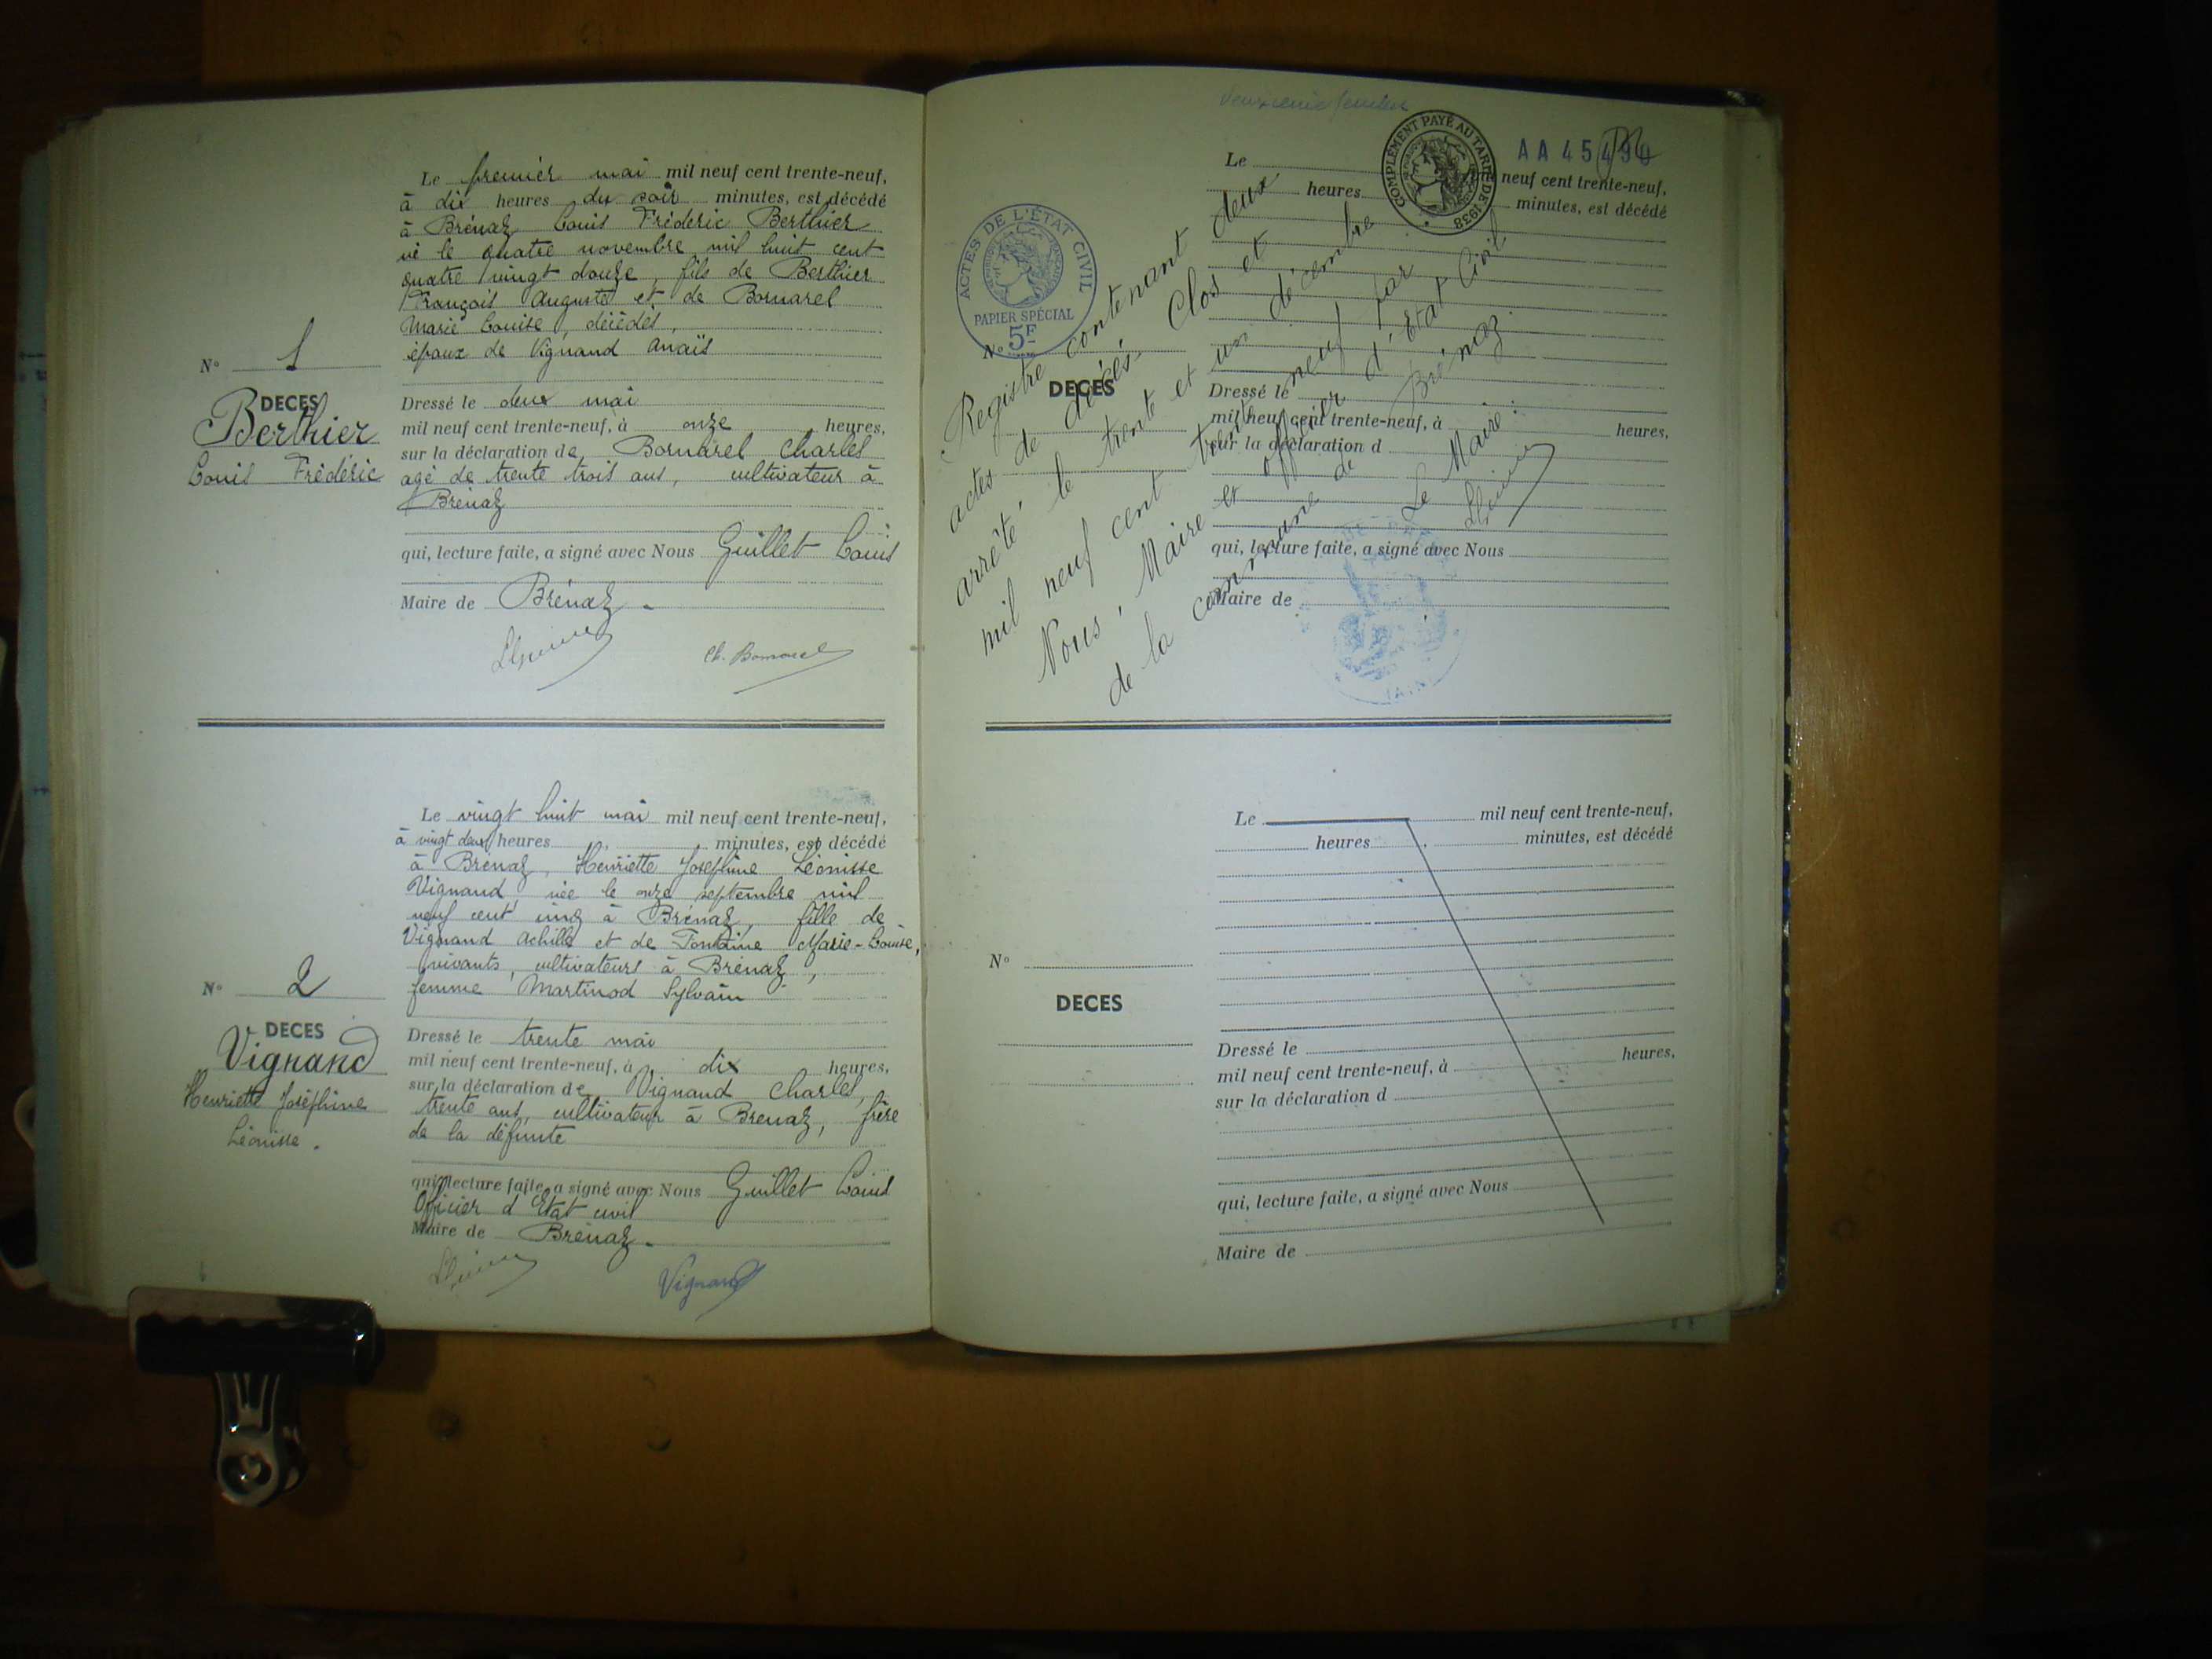 Le premier mai mil neuf cent trente-neuf,
à dix heures du soir minutes, est décédé
à Brénaz Louis Frédéric Berthier
né le quatre novembre mil huit cent
quatre vingt douze, fils de Berthier
François Auguste et de Bornarel
Marie Louise, décédés,
époux de Vignand Anaïs
N° 1
DECES
Berthier
Louis Frédéric
Dressé le deux mai
mil neuf cent trente-neuf, à onze heures,
sur la déclaration de Bornarel Charles
agé de trente trois ans, cultivateur à
Brénaz
qui, lecture faite, a signé avec Nous Guillet Louis
Maire de Brénaz.
Ch. Bornarel
Le vingt huit mai mil neuf cent trente-neuf,
à vingt deux heures minutes, est décédé
à Brénaz, Henriette Joséphine Léonisse
Vignand, née le onze septembre mil
neuf cent cinq à Brénaz, fille de
Vignand Achille et de Fontaine Marie-Louise,
vivants, cultivateurs à Brénaz,
femme Martinod Sylvain
N° 2
DECES
Vignand
Henriette Joséphine
Léonisse.
Dressé le trente mai
mil neuf cent trente-neuf, à dix heures,
sur la déclaration de Vignand Charles,
trente ans, cultivateur à Brenaz, frère
de la défunte
qui, lecture faite, a signé avec Nous Guillet Louis
Officier d'Etat civil
Maire de Brénaz.
Vignand
COMPLÉMENT PAYÉ AU TARIF DE 1938
AA 45
Le neuf cent trente-neuf,
heures minutes, est décédé
ACTES DE L'ÉTAT CIVIL
PAPIER SPÉCIAL
5F
N°
DECES
Registre contenant deux
actes de décés. Clos et
arrêté le trente et un décembre
mil neuf cent trente neuf par
Nous, Maire et officier d'Etat Civil
de la commune de Brénaz.
Le Maire:
Dressé le
mil neuf cent trente-neuf, à heures,
sur la déclaration d
qui, lecture faite, a signé avec Nous
Maire de
Le mil neuf cent trente-neuf,
heures minutes, est décédé
N°
DECES
Dressé le
mil neuf cent trente-neuf, à heures,
sur la déclaration d
qui, lecture faite, a signé avec Nous
Maire de